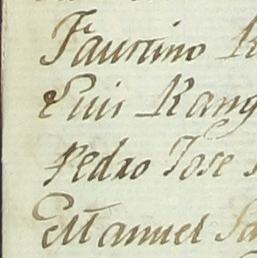 Faustino R
Luis Rang
Pedro Jose
Manuel Sa